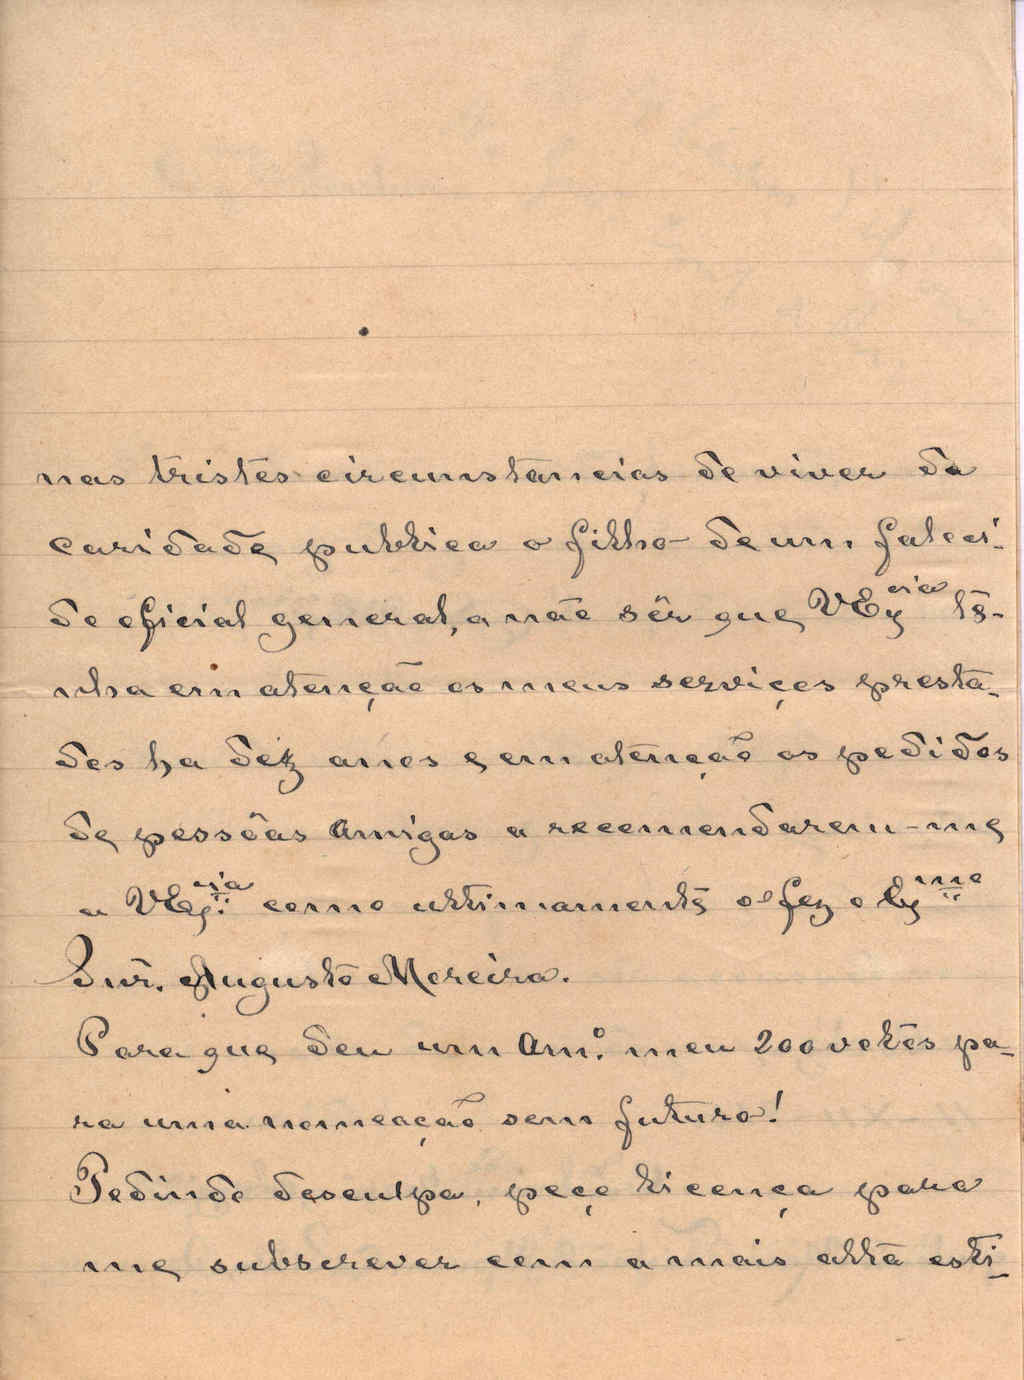 nas tristes circumstancias de viver da
caridade publica o filho de um faleci-
do oficial general, a não sêr que VEx^cia te-
nha em atenção os meus serviços presta-
dos ha déz anos e em atenção os pedidos
de pessôas amigas a recomendarem-me
a VEx.^cia como ultimamente o fez o Ex^mo
Snr. Augusto Moreira.
Para que deu um Am.º meu 200 votos pa-
ra uma nomeação sem futuro!
Pedindo desculpa, peço licença para
me subscrever com a mais alta esti-